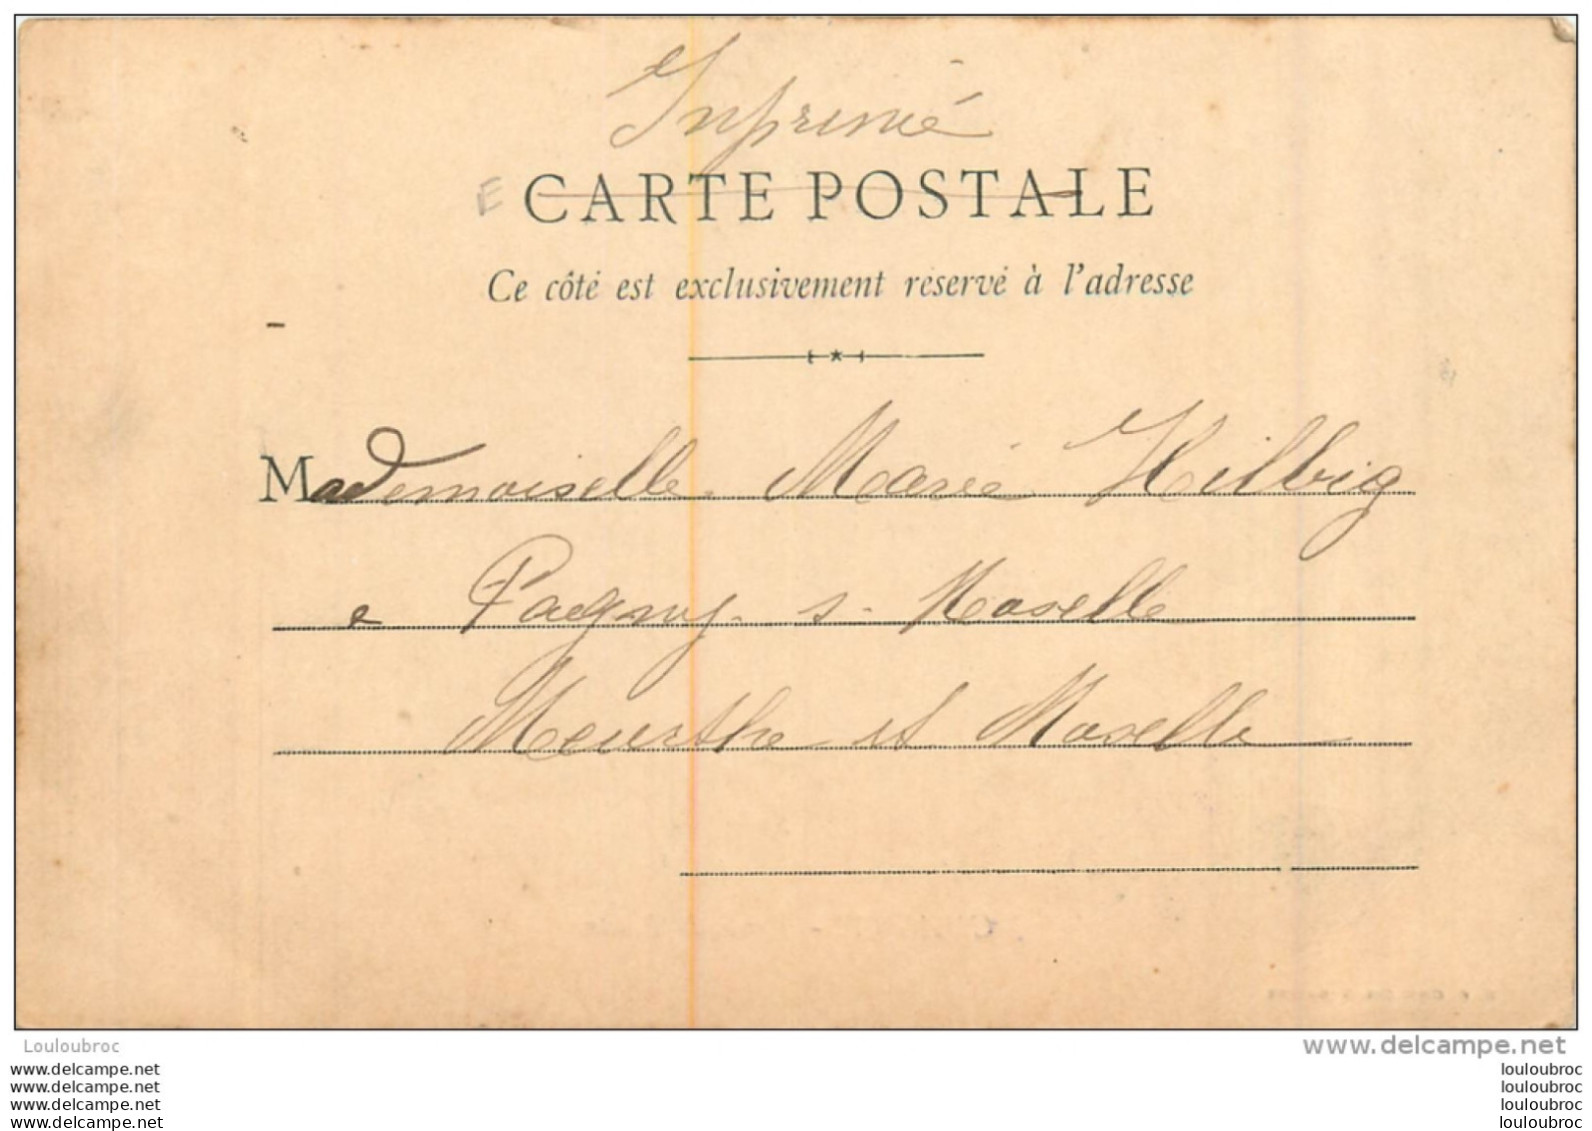 Imprimé
E CARTE POSTALE
Ce côté est exclusivement réservé à l'adresse
Mademoiselle Marie Hilbig
a Pagny s. Moselle
Meurthe et Moselle
Louloubroc
www.delcampe.net
www.delcampe.net
louloubroc
www.delcampe.net
louloubroc
www.delcampe.net
louloubroc
www.delcampe.net
louloubroc